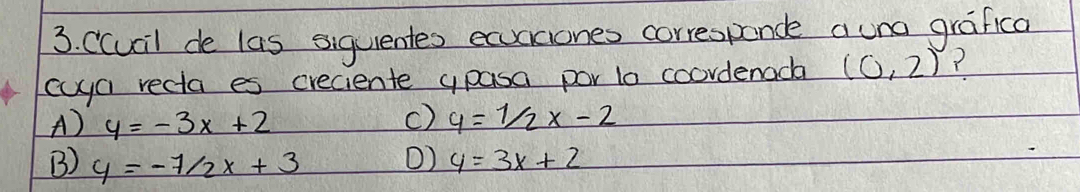 3. ¿Cuál de las siguientes ecuaciones corresponde a una gráfica
cuya recta es creciente y pasa por la coordenada (0,2)?
A) y = -3x + 2 C) y = 1/2x - 2
B) y = -1/2x + 3 D) y = 3x + 2